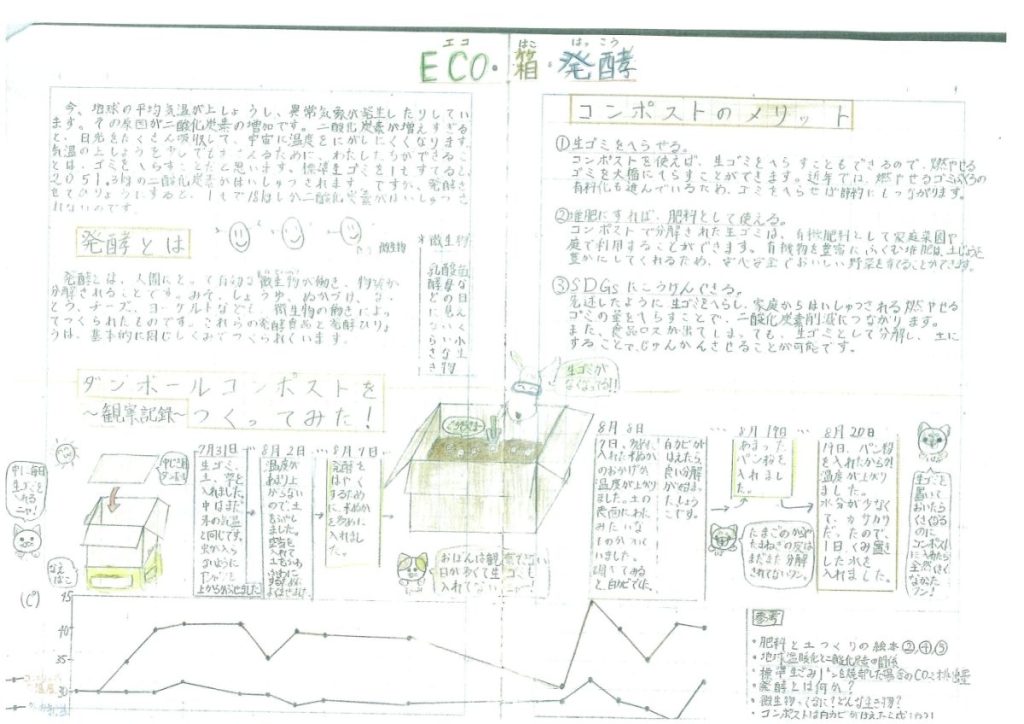 エコ はこ はっこう
ECO・箱・発酵
今、地球の平均気温が上しょうし、異常気象が発生したりしてい
ます。その原因が二酸化炭素の増加です。二酸化炭素が増えすぎる
と、日光をたくさん吸収して、宇宙に温度をにがしにくくなります。
気温の上しょうを少しでもおさえるために、わたしたちができるこ
とは、ゴミをへらすことだと思います。標準生ゴミを1tすてると、
2051.3kgの二酸化炭素がはいしゅつされます。ですが、発酵さ
せてひりょうにすると、1tで18kgしか二酸化炭素がはいしゅつさ
れないのです。
発酵とは
微生物
発酵とは、人間にとって有功な微生物が働き、物質が
分解されることです。みそ、しょうゆ、ぬかづけ、なっ
とう、チーズ、ヨーグルトなども、微生物の働きによっ
てつくられたものです。これらの発酵食品と発酵ひりょ
うは、基本的に同じしくみでつくられています。
*微生物
乳酸菌
酵母な
どの目
に見え
ない
らい小
さな生
き物
コンポストのメリット
①生ゴミをへらせる。
コンポストを使えば、生ゴミをへらすこともできるので、燃やせる
ゴミを大幅にへらすことができます。近年では、燃やせるゴミぶくろの
有料化も進んでいるため、ゴミをへらせば節約にもつながります。
②堆肥にすれば、肥料として使える。
コンポストで分解された生ゴミは、有機肥料として家庭菜園や
庭で利用することができます。有機物を豊富にふくむ堆肥は、土じょうを
豊かにしてくれるため、安心安全でおいしい野菜を育てることができます。
③SDGsにこうけんできる。
先述したように生ゴミをへらし、家庭からはいしゅつされる燃やせる
ゴミの量をへらすことで、二酸化炭素削減につながります。
また、食品ロスが出てしまっても、生ゴミとして分解し、土に
することで、じゅんかんさせることが可能です。
ダンボールコンポストを
〜観察記録〜つくってみた!
生ゴミが
なくなってる!!
中に毎日
生ゴミを
入れる
ニャ!
なえ
ばこ
7月31日
生ゴミ、
土、
入れました。
中はまだ
外の気温
と同じです。
虫が入ら
ないように
…
8月2日
温度が
あまり上
がらない
ので、土
をふやし
ました。
空気を
入れて
…
8月7日
発酵を
はやく
するため
に、米ぬか
を多めに
入れまし
た。
おぼんは観察できない
日が多くて生ゴミも
入れてないニャー!
8月8日
7日、多めに
入れた米ぬか
のおかげか、
温度が上がり
ました。土の
表面にわた
みたいな
ものがついて
いました。
調べてみる
と白カビでした。
白カビが
はえたら、
良い分解
が始まっ
たしょう
こです。
…
8月19日
あまった
パン粉を
入れまし
た。
たまごのからや
たまねぎの皮は
まだまだ分解
されてないワン。
…
8月20日
19日、パン粉
を入れたからか、
温度が上がり
ました。
水分が少なく
て、カサカサ
だったので、
1日くみ置き
した水を
入れました。
生ゴミを
置いて
おいたら
くさくなる
のに
コンポスト
に入れたら
全然くさく
なかった
ワン!
(℃)
45
40
35
30
参考
・肥料と土つくりの絵本②,④,⑤
・地球温暖化と二酸化炭素の関係
・標準生ごみ1トンを焼却した場合のCO2排出量
・発酵とは何か?
・微生物ってなに?どんな生き物?
・コンポストは白カビがはえたら成功?!